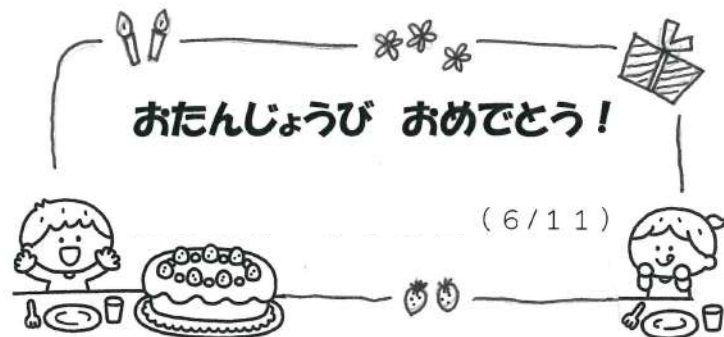 おたんじょうび　おめでとう！
（６/１１）